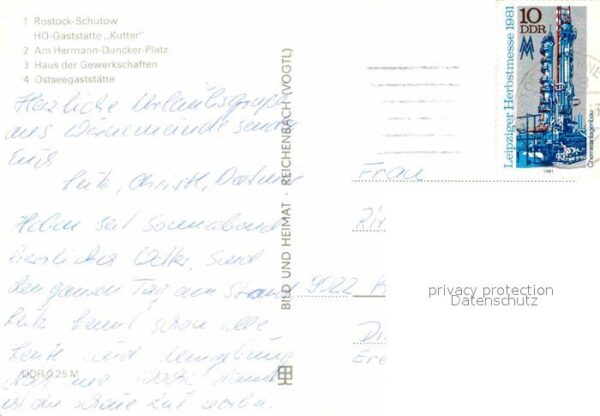 1 Rostock-Schutow
HO-Gaststätte „Kutter"
2 Am Hermann-Duncker-Platz
3 Haus der Gewerkschaften
4 Ostseegaststätte
Herzliche Urlaubsgrüße
aus Warnemünde senden
Euch
Christl,
Haben seit Sonnabend
herrliches Wetter, sind
den ganzen Tag am Strand
kennt schon alle
Leute und Umgebung
ist die schöne Zeit vorbei.
DDR 0,25 M
BILD UND HEIMAT · REICHENBACH (VOGTL)
Leipziger Herbstmesse 1981
10
DDR
Chemieanlagenbau
1981
Frau
9022
privacy protection
Datenschutz